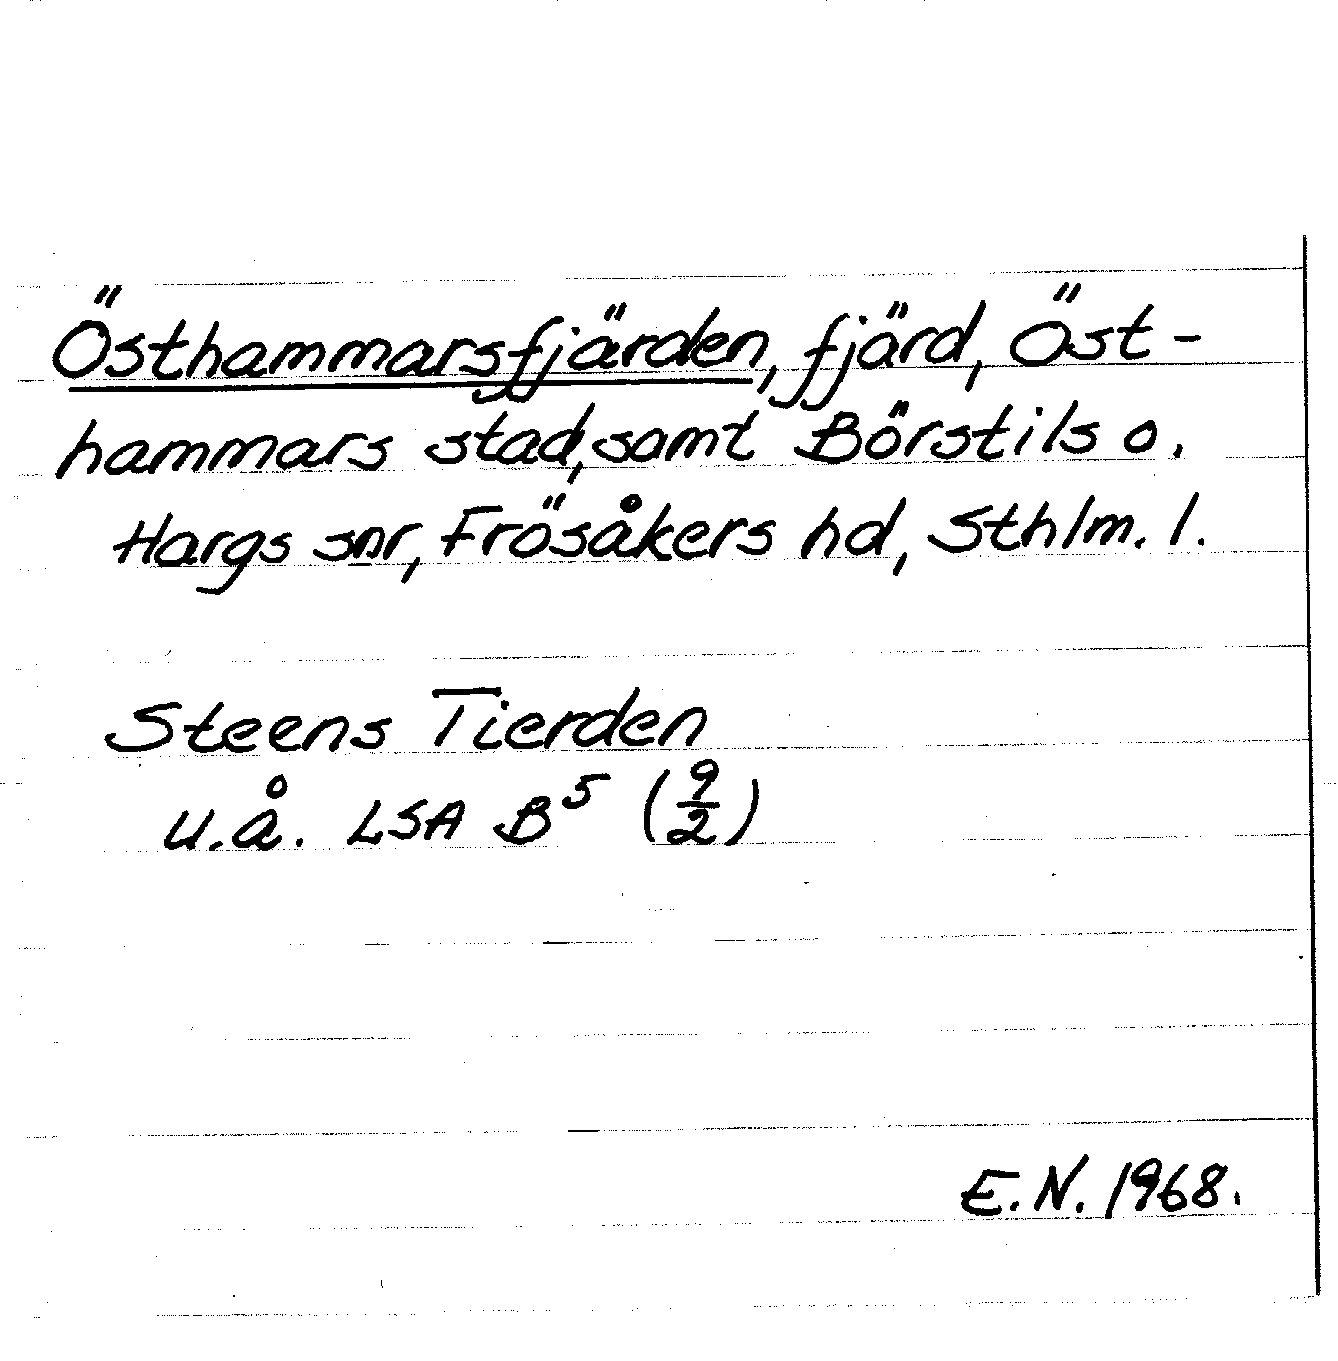 Östhammarsfjärden, fjärd, Öst-
hammars stad, samt Börstils o.
Hargs snr, Frösåkers hd, Sthlm. l.
Steens Tierden
u.å. LSA B⁵ (9/2)
E.N. 1968.